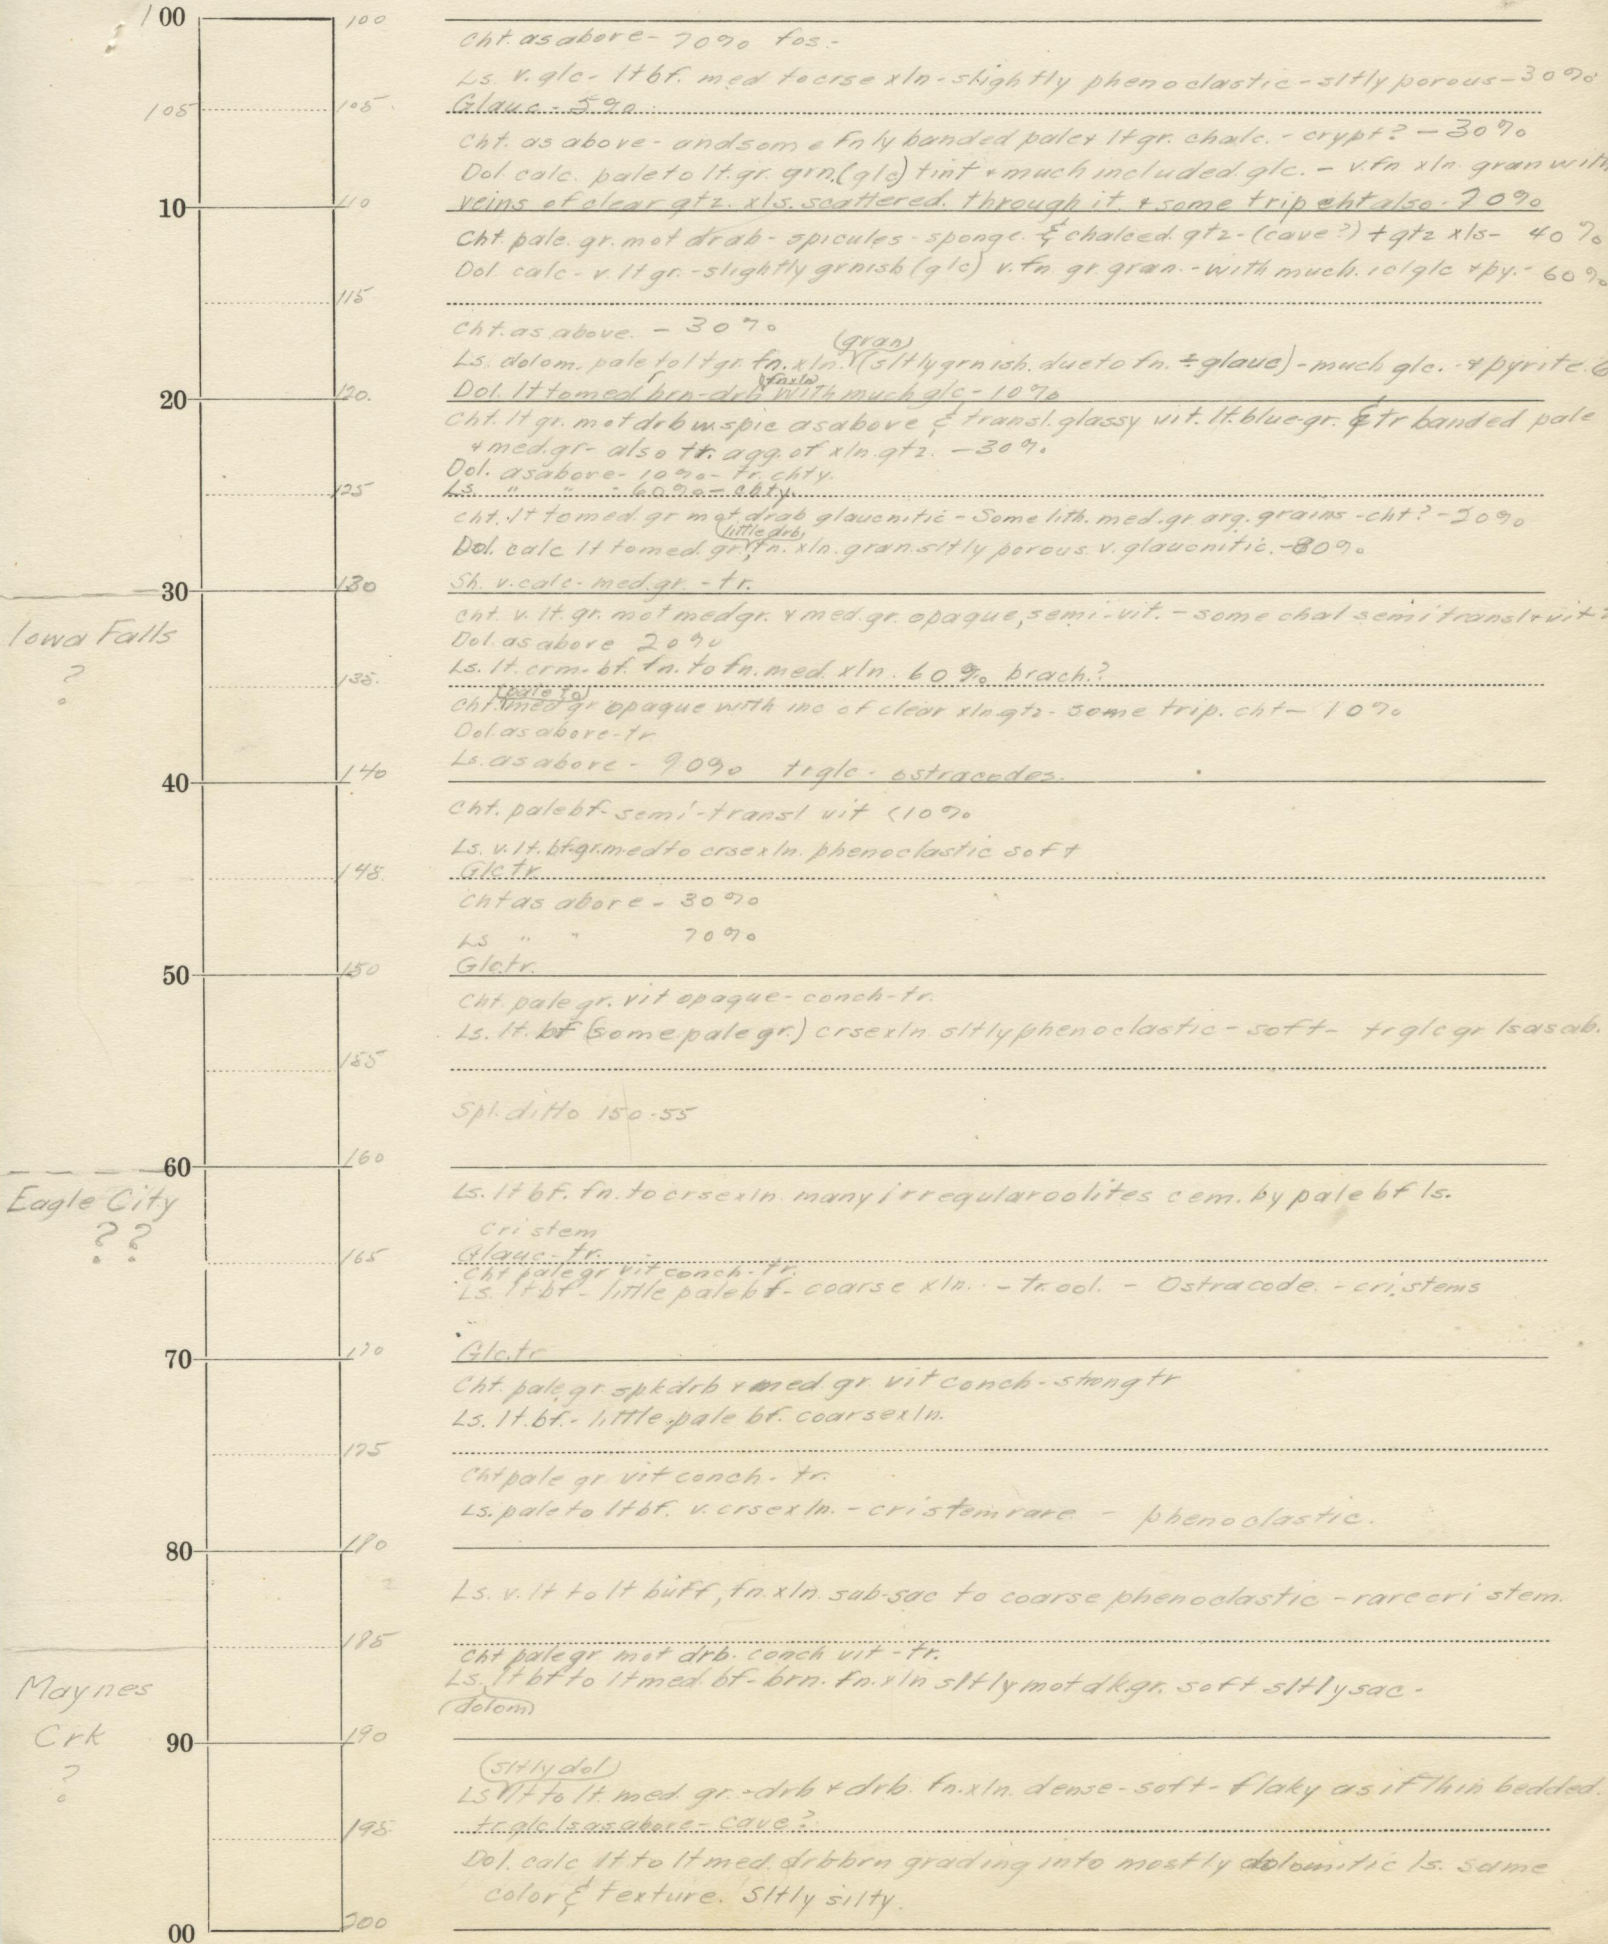 100 100
Cht. as above - 70% fos.-
Ls. v. glc - lt bf. med to crse xln - slightly phenoclastic - sltly porous - 30%
105 105 Glauc - 5%
Cht. as above - and some fnly banded pale + lt gr. chalc. - crypt? - 30%
Dol. calc. pale to lt. gr. grn. (glc) tint + much included glc. - v. fn xln. gran with
10 110 veins of clear qtz. xls. scattered through it. + some trip cht also - 70%
Cht pale. gr. mot drab - spicules - sponge. & chalced. qtz - (cave?) + qtz xls - 40%
Dol calc - v. lt gr. - slightly grnish (glc) v. fn gr gran. - with much. glc + py. - 60%
115
Cht. as above. - 30%
(gran)
Ls. dolom. pale to lt gr. fn. xln. (sltly grnish. due to fn. ± glauc) - much glc. + pyrite.
(fn xln)
20 120. Dol. lt to med brn - drb with much glc - 10%
Cht. lt gr. mot drb w. spic as above & transl. glassy vit. lt. blue-gr. & tr banded pale
+ med. gr - also tr. agg. of xln. qtz. - 30%
Dol. as above - 10% - tr. chty.
125 Ls. " " - 60% - chty.
cht. lt to med. gr mot drab glaucnitic - Some lith. med. gr arg. grains - cht? - 20%
(little drb)
Dol. calc lt to med. gr. fn. xln. gran. sltly porous. v. glaucnitic. - 80%
30 130 Sh. v. calc - med. gr. - tr.
Iowa Falls
?
cht v. lt gr. mot med gr. + med. gr. opaque, semi-vit. - some chal semi transl + vit
Dol. as above 20%
Ls. lt. crm - bf. fn. to fn. med. xln. 60% brach.?
135.
(pale to)
Cht. med gr opaque with inc of clear xln. qtz - some trip. cht - 10%
Dol. as above - tr.
40 140 Ls. as above - 90% tr glc - ostracodes.
Cht. pale bf - semi-transl vit <10%
Ls. v. lt. bf-gr. med to crse xln. phenoclastic soft
145 Glc tr.
Cht as above - 30%
Ls " " 70%
50 150 Glc. tr.
Cht. pale gr. vit opaque - conch - tr.
Ls. lt. bf (some pale gr.) crse xln sltly phenoclastic - soft - tr glc gr ls as ab.
155
Spl. ditto 150-55
60 160
Eagle City
??
Ls. lt bf. fn. to crse xln. many irregular oolites cem. by pale bf ls.
cri stem
165 Glauc - tr.
Cht pale gr vit conch - tr.
Ls. lt bf - little pale bf - coarse xln. - tr. ool. - Ostracode. - cri. stems
70 170 Glc. tr
Cht. pale. gr. spk drb + med. gr. vit conch - strong tr
Ls. lt. bf. - little pale bf. coarse xln.
175
Cht pale gr vit conch - tr.
Ls. pale to lt bf. v. crse xln. - cri stem rare - phenoclastic.
80 180
Ls. v. lt to lt buff, fn. xln sub-sac to coarse phenoclastic - rare cri stem.
185
Cht pale gr mot drb. conch vit - tr.
Ls. lt bf to lt med. bf - brn. fn. xln sltly mot dk. gr. soft sltly sac -
(dolom)
Maynes
Crk
?
90 190
(sltly dol)
Ls lt to lt. med. gr. - drb + drb. fn. xln. dense - soft - flaky as if thin bedded.
195 tr glc ls as above - cave?
Dol. calc lt to lt med. drb brn grading into mostly dolomitic ls. same
color & texture. Sltly silty.
00 200